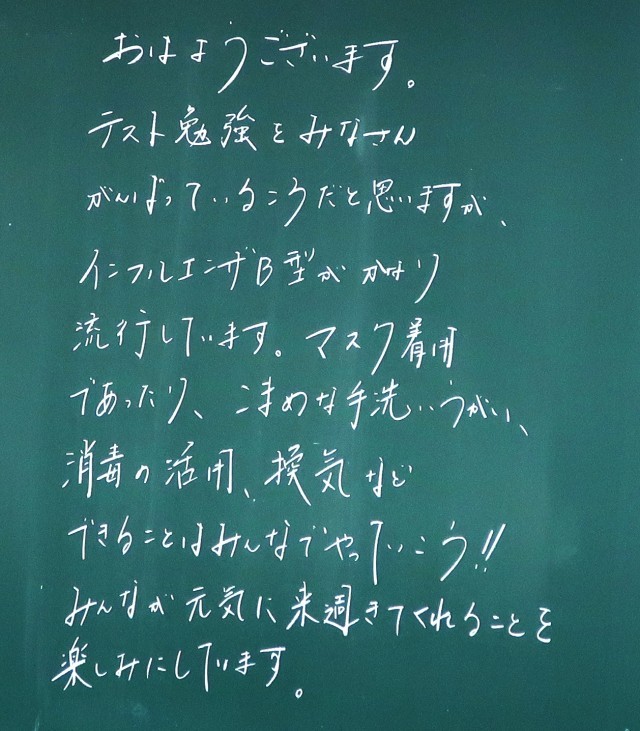 おはようございます。
テスト勉強をみなさん
がんばっているころだと思いますが、
インフルエンザB型がかなり
流行しています。マスク着用
であったり、こまめな手洗いうがい、
消毒の活用、換気など
できることはみんなでやっていこう!!
みんなが元気に来週きてくれることを
楽しみにしています。